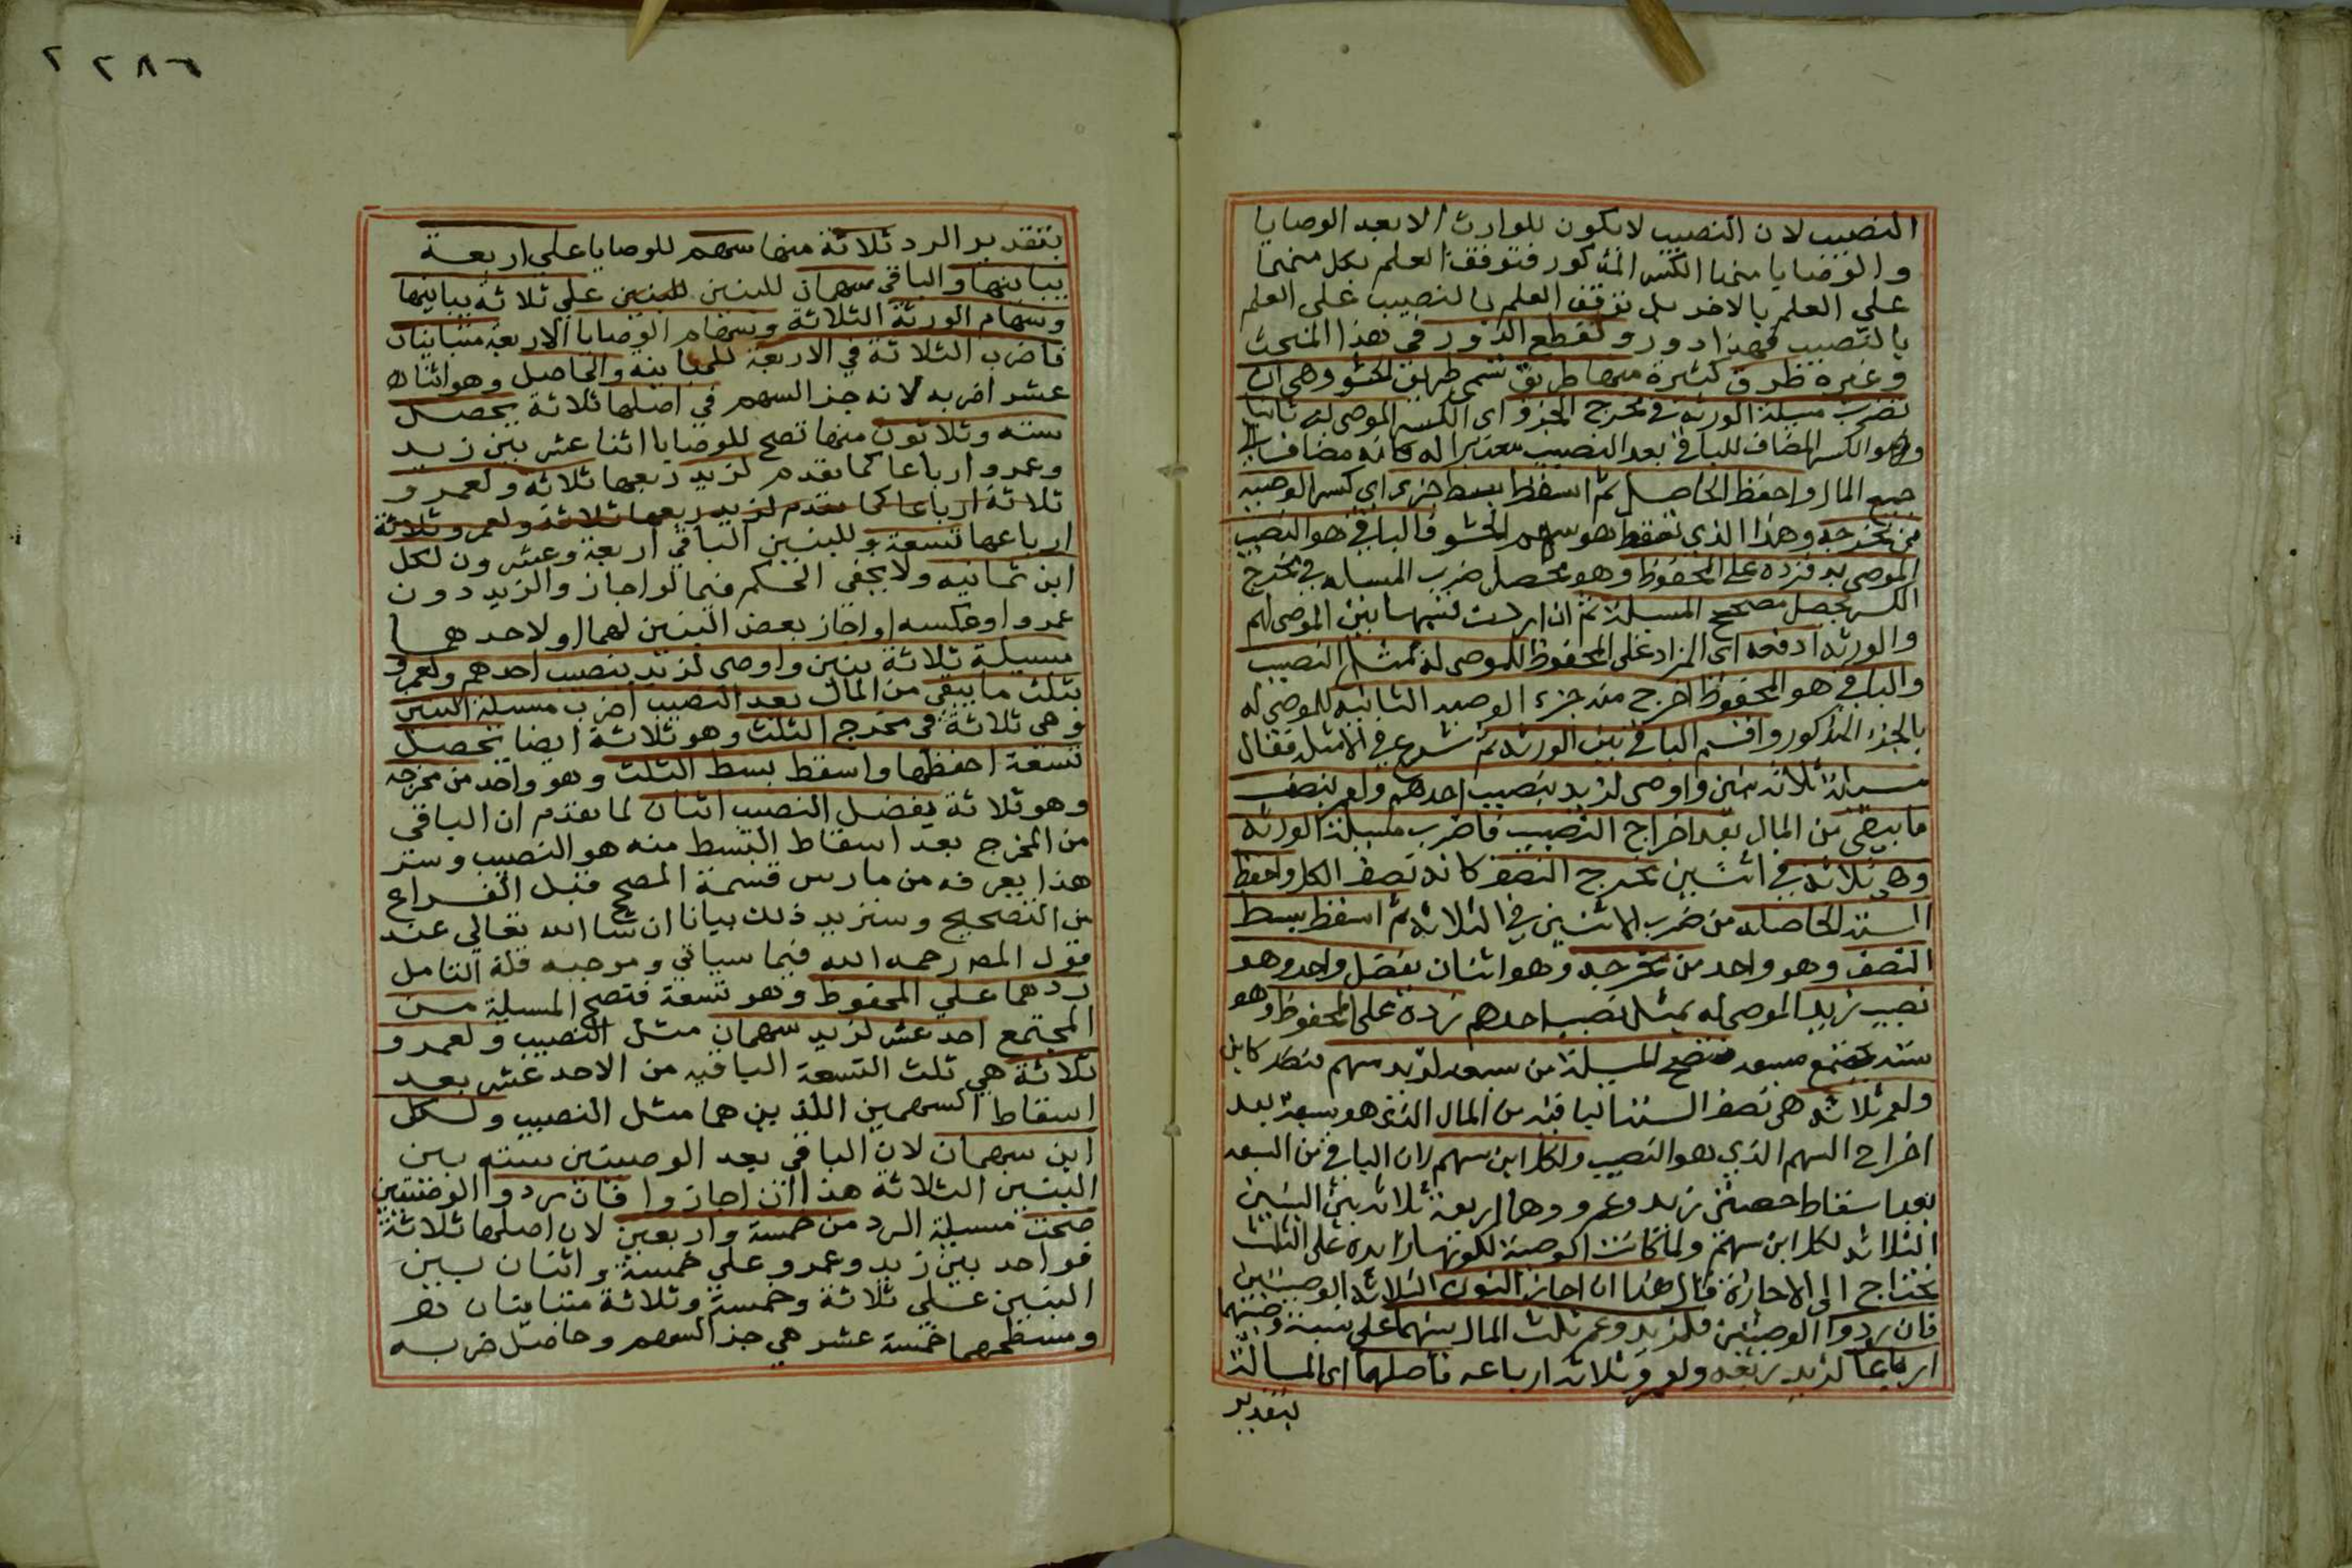 النصيب لان النصيب لا يكون للوارث الا بعد الوصايا
والوصايا منها الكسر المذكور فتوقف العلم بكل منهما
على العلم بالاخر بل توقف العلم بالنصيب على العلم
بالنصيب فهذا دور ولقطع الدور في هذا المبحث
وغيره طرق كثيرة منها طريق تسمى طريق الحشو وهي ان
تضرب مسيلة الورثه في مخرج الجزؤ اى الكسر الموصى له ثانيا
وهو الكسر المضاف للباقي بعد النصيب معتبرا له كانه مضاف الى
جميع المال واحفظ الحاصل ثم اسقط بسط جزء اى كسر الوصيه
من مخرجه وهذا الذى تسقط هو سهم الحشو فالباقي هو النصيب
الموصى به فزده على المحفوظ وهو محصل ضرب المساله في مخرج
الكسر يحصل مصحح المسيلة ثم ان اردت قسمها بين الموصى لهم
والورثه ادفعه اى المزاد على المحفوظ للموصى له بمثل النصيب
والباقي هو المحفوظ اخرج منه جزء الوصيه الثانيه للموصى له
بالجزء المذكور واقسم الباقي بين الورثه ثم شرع في الامثله فقال
مسيلة ثلاثه بنين واوصى لزيد بنصيب احدهم ولعمر بنصف
ما يبقى من المال بعد اخراج النصيب فاضرب مسيلة الورثه
وهى ثلاثه في اثنين مخرج النصف كانه نصف الكل واحفظ
الستة الحاصله من ضرب الاثنين في الثلاثه ثم اسقط بسط
النصف وهو واحد من مخرجه وهو اثنان يفضل واحد وهو
نصيب زيد الموصى له بمثل نصيب احدهم زده على المحفوظ وهو
ستة يجتمع سبعه فتصح المسيلة من سبعه لزيد سهم بنصه كابن
ولعمر ثلاثه هى نصف الستة الباقيه من المال الذى هو سبعة بعد
اخراج السهم الذي هو النصيب ولكل ابن سهم لان الباقي من السبعه
بعد اسقاط حصتى زيد وعمرو وهما اربعة ثلاثه بين البنين
الثلاثه لكل ابن سهم ولما كانت الوصية لكونها زايدة على الثلث
تحتاج الى الاجازة قال هذا ان اجاز البنون الثلاثه الوصيتين
فان ردوا الوصيتين فلزيد وعمر ثلث المال بينهما على نسبة وصيتهما
ارباعا لزيد ربعه ولعمرو ثلاثه ارباعه فاصلهما اى المسالة
بتقدير
بتقدير الرد ثلاثة منها سهم للوصايا على اربعة
يباينها والباقي سهمان للبنين للبنين علي ثلاثة يباينها
وسهام الورثة الثلاثة وسهام الوصايا الاربعة متباينان
فاضرب الثلاثة في الاربعة للمباينه والحاصل وهو اثنا
عشر اضربه لانه جز السهم في اصلها ثلاثة يحصل
سته وثلاثون منها تصح للوصايا اثنا عشر بين زيد
وعمرو ارباعا كما تقدم لزيد ربعها ثلاثه ولعمرو
ثلاثة ارباعا كما تقدم لزيد ربعها ثلاثة ولعمرو ثلاثة
ارباعها تسعة وللبنين الباقي اربعة وعشرون لكل
ابن ثمانيه ولا يخفى الحكم فيما لو اجاز والزيد دون
عمرو او عكسه او اجاز بعض البنين لهما او لاحدهما
مسيلة ثلاثة بنين واوصى لزيد بنصيب احدهم ولعمرو
بثلث ما يبقي من المال بعد النصيب اضرب مسيلة البنين
وهى ثلاثة في مخرج الثلث وهو ثلاثة ايضا يحصل
تسعة احفظها واسقط بسط الثلث وهو واحد من مخرجه
وهو ثلاثة يفضل النصيب اثنان لما تقدم ان الباقي
من المخرج بعد اسقاط البسط منه هو النصيب وسر
هذا يعرفه من مارس قسمة المصحح قبل الفراغ
من التصحيح وسنزيد ذلك بيانا ان شا الله تعالي عند
قول المص رحمه الله فيما سياتي وموجبه قلة التامل
زدهما علي المحفوظ وهو تسعة فتصح المسيلة من
المجتمع احد عشر لزيد سهمان مثل النصيب ولعمرو
ثلاثة هي ثلث التسعة الباقيه من الاحد عشر بعد
اسقاط السهمين اللذين هما مثل النصيب ولكل
ابن سهمان لان الباقي بعد الوصيتين سته بين
البنين الثلاثة هذا ان اجازوا فان ردوا الوصيتين
صحت مسيلة الرد من خمسة واربعين لان اصلها ثلاثة
فواحد بين زيد وعمرو علي خمسة واثنان بين
البنين علي ثلاثة وخمسة وثلاثة متباينان
ومسطحهما خمسة عشر هي جز السهم وحاصل ضربه